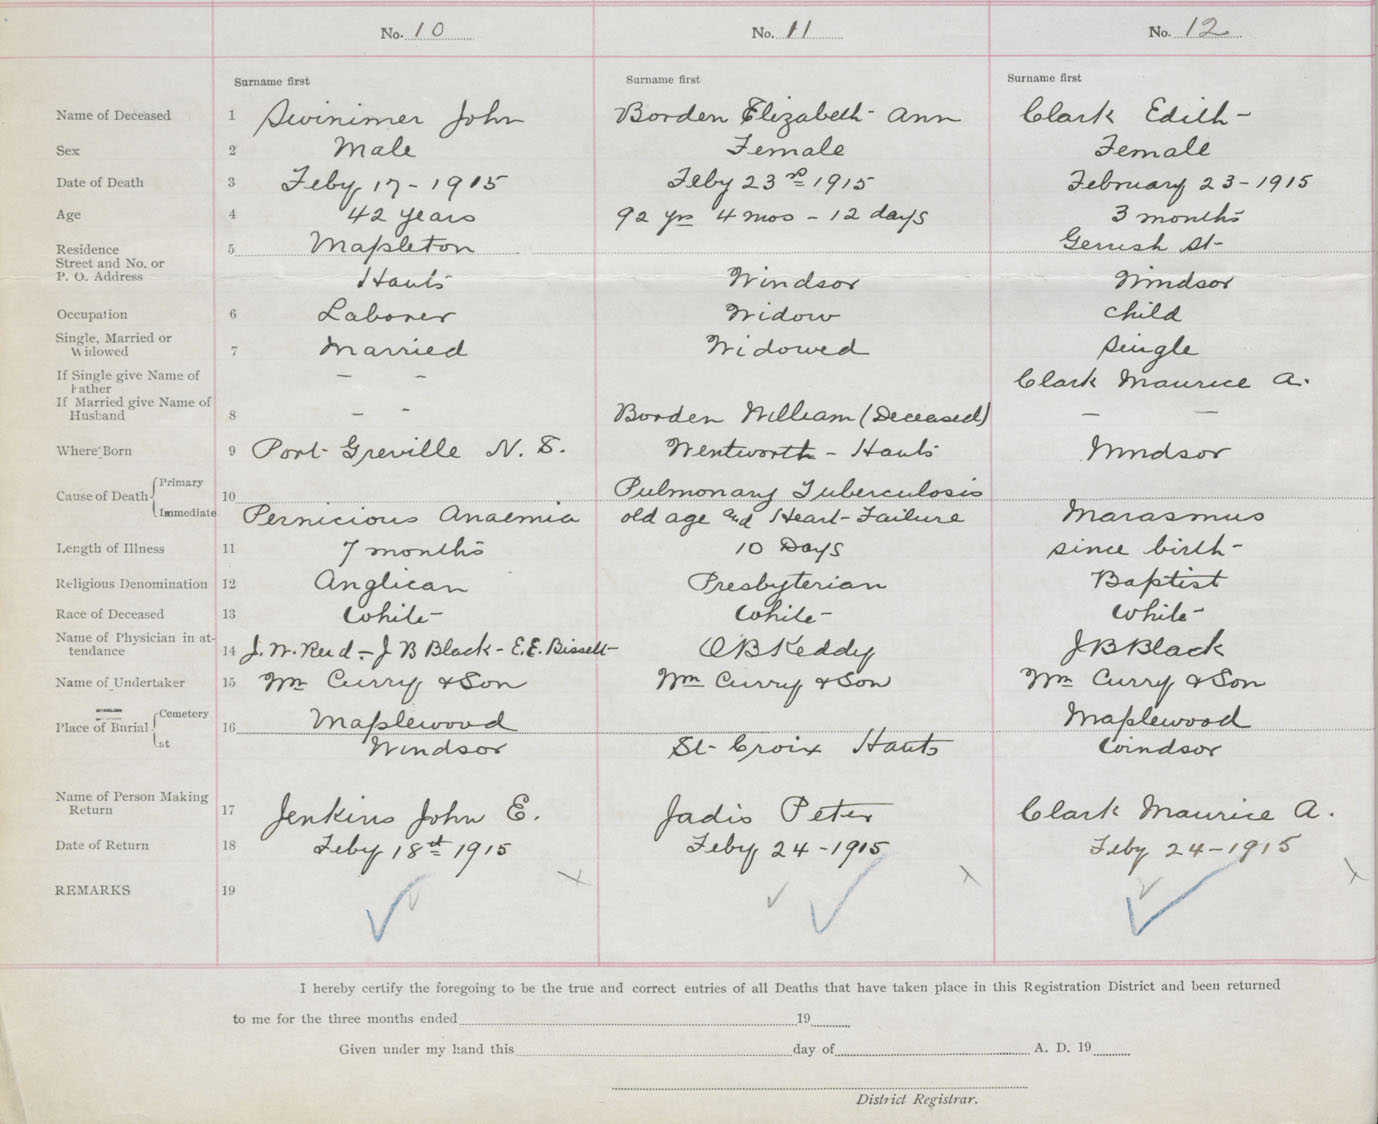 No. 10 No. 11 No. 12
Surname first Surname first Surname first
Name of Deceased 1 Swinimer John Borden Elizabeth Ann Clark Edith
Sex 2 Male Female Female
Date of Death 3 Feby 17 - 1915 Feby 23rd 1915 February 23 - 1915
Age 4 42 years 92 yrs 4 mos - 12 days 3 months
Residence 5 Mapleton Gerrish St
Street and No. or
P. O. Address Hants Windsor Windsor
Occupation 6 Laborer Widow child
Single, Married or
Widowed 7 Married Widowed single
If Single give Name of
Father - - Clark Maurice A.
If Married give Name of
Husband 8 - - Borden William (Deceased) - -
Where Born 9 Port Greville N. S. Wentworth - Hants Windsor
Cause of Death Primary 10 Pulmonary Tuberculosis
Immediate Pernicious Anaemia old age and Heart-Failure Marasmus
Length of Illness 11 7 months 10 Days since birth
Religious Denomination 12 Anglican Presbyterian Baptist
Race of Deceased 13 White White White
Name of Physician in at-
tendance 14 J. W. Reid - J B Black - E.E. Bissett O B Keddy J B Black
Name of Undertaker 15 Wm Curry & Son Wm Curry & Son Wm Curry & Son
Place of Burial Cemetery 16 Maplewood Maplewood
at Windsor St Croix Hants Windsor
Name of Person Making
Return 17 Jenkins John E. Jadis Peter Clark Maurice A.
Date of Return 18 Feby 18st 1915 Feby 24 - 1915 Feby 24 - 1915
REMARKS 19
I hereby certify the foregoing to be the true and correct entries of all Deaths that have taken place in this Registration District and been returned
to me for the three months ended 19
Given under my hand this day of A. D. 19
District Registrar.